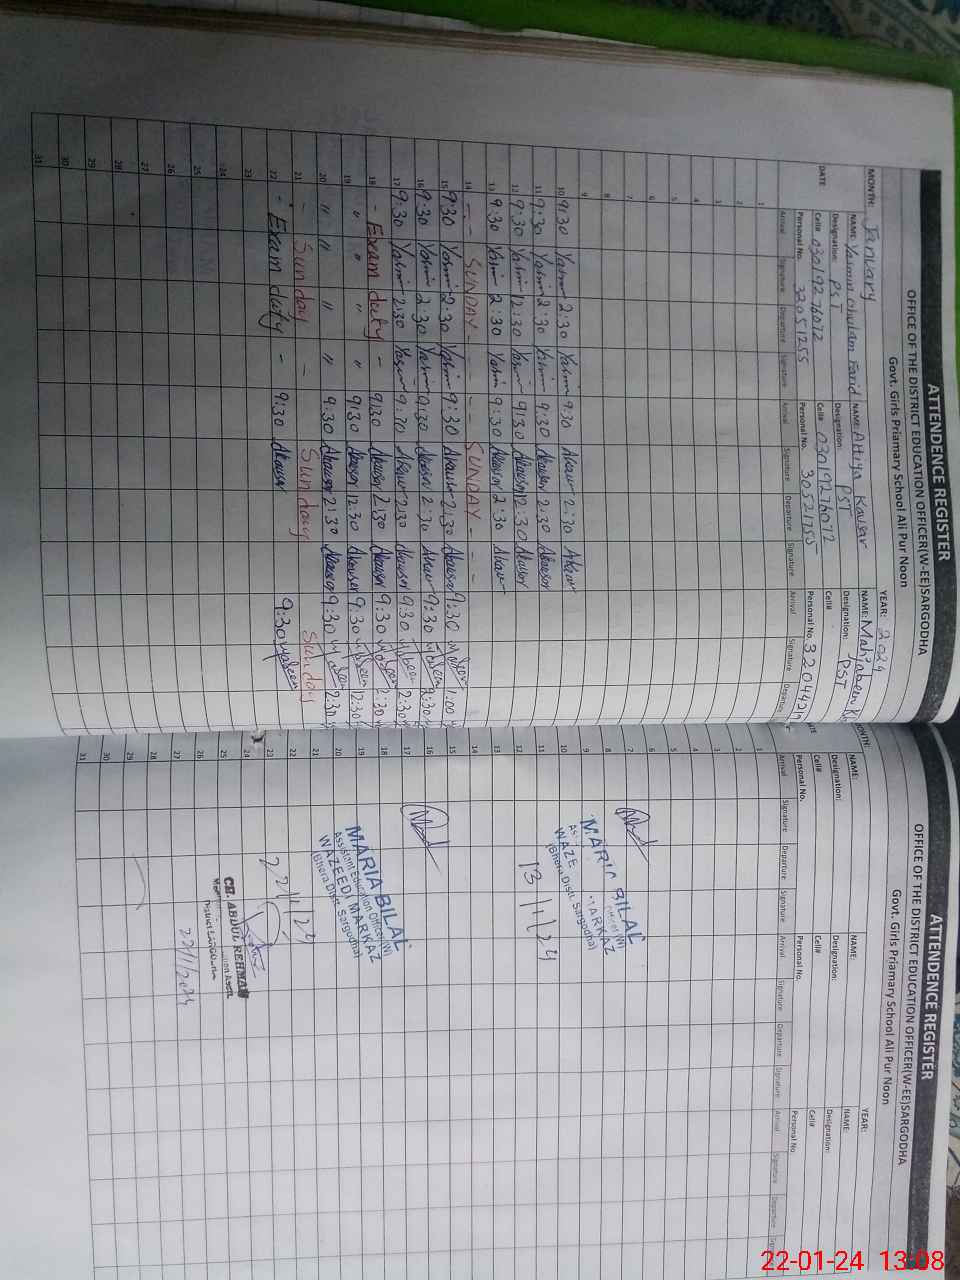 ATTENDENCE REGISTER
OFFICE OF THE DISTRICT EDUCATION OFFICER(W-EE)SARGODHA
Govt. Girls Priamary School Ali Pur Noon
MONTH: January YEAR: 2024
NAME: Yasmin Ghulam Farid NAME: Attiya Kausar NAME: Mahjabeen
Designation: PST Designation: PST Designation: PST
Cell# 03019276072 Cell# 03019276072 Cell#
DATE Personal No. 32051255 Personal No. 30521755 Personal No. 3204421
Arrival Signature Departure Signature Arrival Signature Departure Signature Arrival Signature Departure
1
2
3
4
5
6
7
8
9
10 9:30 Yasmin 2:30 Yasmin 9:30 Akausar 2:30 Akausar
11 9:30 Yasmin 2:30 Yasmin 9:30 Akausar 2:30 Akausar
12 9:30 Yasmin 12:30 Yasmin 9:30 Akausar 12:30 Akausar
13 9:30 Yasmin 2:30 Yasmin 9:30 Akausar 2:30 Akausar
14 - - SUNDAY - - - - - SUNDAY - - -
15 9:30 Yasmin 2:30 Yasmin 9:30 Akausar 2:30 Akausar 9:30 Mjabeen 1:00
16 9:30 Yasmin 2:30 Yasmin 9:30 Akausar 2:30 Akausar 9:30 Mjabeen 2:30
17 9:30 Yasmin 2:30 Yasmin 9:30 Akausar 2:30 Akausar 9:30 Mjabeen 2:30
18 - Exam duty - 9:30 Akausar 2:30 Akausar 9:30 Mjabeen 2:30
19 " " " " 9:30 Akausar 12:30 Akausar 9:30 Mjabeen 12:30
20 " " " " 9:30 Akausar 2:30 Akausar 9:30 Mjabeen 2:30
21 - Sunday - Sunday Sunday
22 - Exam duty - 9:30 Akausar 9:30 Mjabeen
23
24
25
26
27
28
29
30
31
ATTENDENCE REGISTER
OFFICE OF THE DISTRICT EDUCATION OFFICER(W-EE)SARGODHA
Govt. Girls Priamary School Ali Pur Noon
MONTH: YEAR:
NAME: NAME: NAME:
Designation: Designation: Designation:
Cell# Cell# Cell#
Personal No. Personal No. Personal No.
Arrival Signature Departure Signature Arrival Signature Departure Signature Arrival Signature Departure Signature
1
2
3
4
5
6
7
8
9
10
11
12
13
14
15
16
17
18
19
20
21
22
23
24
25
26
27
28
29
30
31
BILAL
MARKAZ
(Bhera Distt. Sargodha)
13/1/24
MARIA BILAL
Assistant Education Officer (W)
WAZEEDI MARKAZ
(Bhera Distt. Sargodha)
22/1/24
CH. ABDUL REHMAN
22/1/2024
22-01-24 13:08